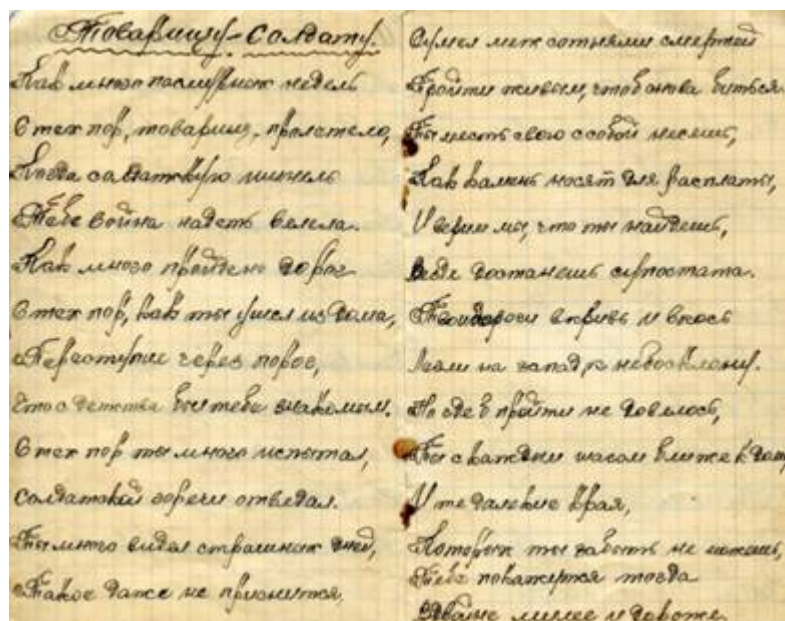 Товарищу-Солдату.
Как много пасмурных недель
С тех пор, товарищ, пролетело,
Когда солдатскую шинель
Тебе война надеть велела.
Как много пройдено дорог
С тех пор, как ты ушел из дома,
Переступив через порог,
Что с детства был тебе знакомым.
С тех пор ты много испытал,
Солдатской горечи отведал.
Ты много видел страшных дней,
Такое даже не приснится,
Сумел меж сотнями смертей
Пройти живым, чтоб снова биться.
Ты месть свою с собой несешь,
Как камень носят для расплаты,
И верим мы, что ты найдешь,
Везде достанешь супостата.
Твои дороги вкривь и вкось
Легли на запад, к небосклону.
Но где б пройти не довелось,
Ты с каждым шагом ближе к дому
И те далекие края,
Которых ты забыть не можешь,
Тебе покажутся тогда
Вдвойне милее и дороже